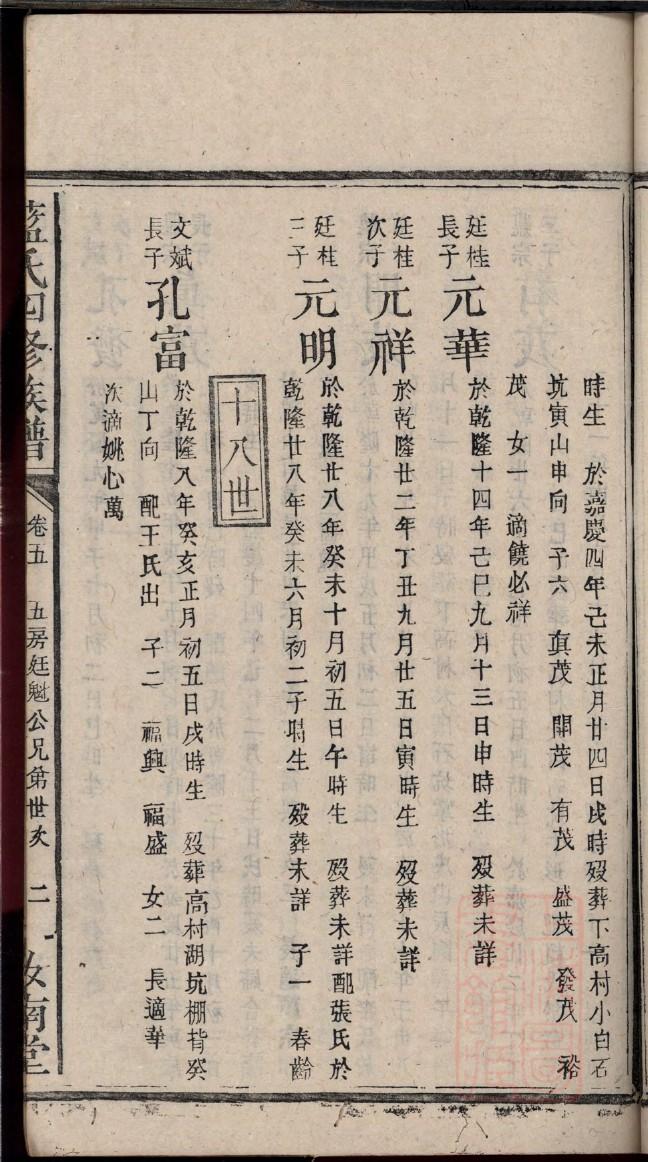 時生　於嘉慶四年己未正月廿四日戌時歿葬下高村小白石
坑寅山申向　子六　眞茂　開茂　有茂　盛茂　發茂　裕
茂　女一　滴饒必祥
廷桂
長子
元華
於乾隆十四年己巳九月十三日申時生　歿葬未詳
廷桂
次子
元祥
於乾隆廿二年丁丑九月廿五日寅時生　歿葬未詳
廷桂
三子
元明
於乾隆廿八年癸未十月初五日午時生　歿葬未詳配張氏於
乾隆廿八年癸未六月初二子時生　歿葬未詳　子一　春齡
十八世
文斌
長子
孔富
於乾隆八年癸亥正月初五日戌時生　歿葬高村湖坑棚背癸
山丁向　配王氏出　子二　福興　福盛　女二　長適華
次滴姚心萬
藍氏四修族譜
卷五　五房廷魁公兄弟世次　二
汝南堂